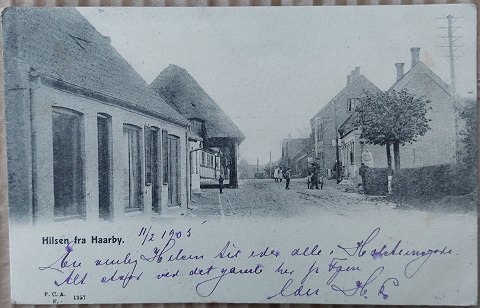 11/2 1905
Hilsen fra Haarby.
En venlig Hilsen til eder alle i
Alt staar ved det gamle her på Fyen
F. C. A.
F. 1357